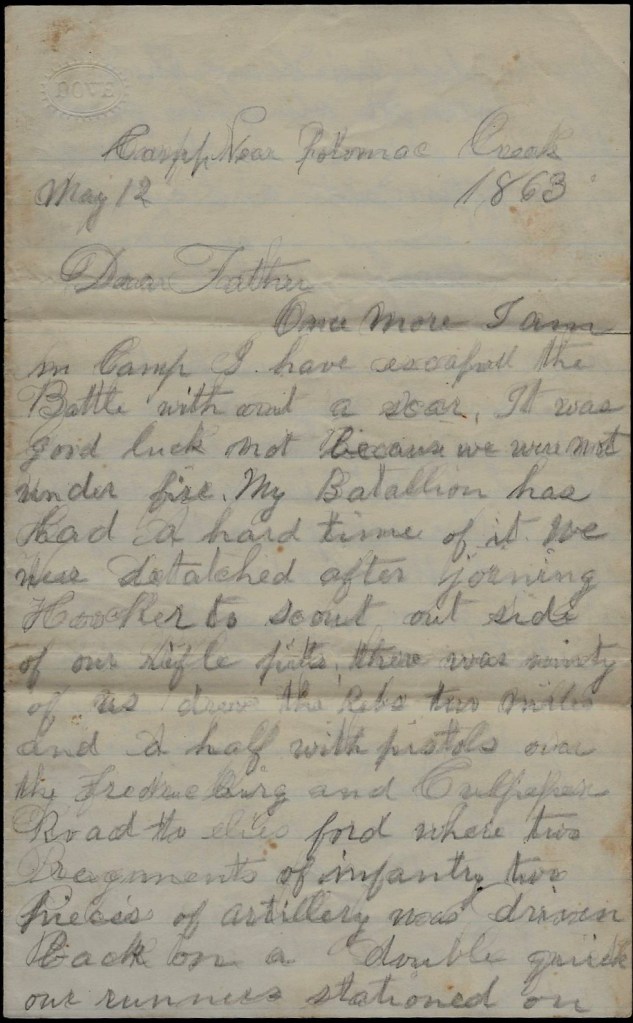 Camp Near Potomac Creek
May 12 1863
Dear Father
Once More I am
in Camp I have escaped the
Battle with out a scar. It was
good luck not because we were not
under fire. My Batallion has
Had A hard time of it. We
was Detatched after Jorning
Hoocker to scout out side
of our rifle pitts, there was ninty
of us drove the Rebs two miles
and A half with pistols over
the Fredricburg and Culpeper
Road to elies ford where two
Reagments of infantry two
pieces of artillery was driven
Back on a double quick
our runners stationed on